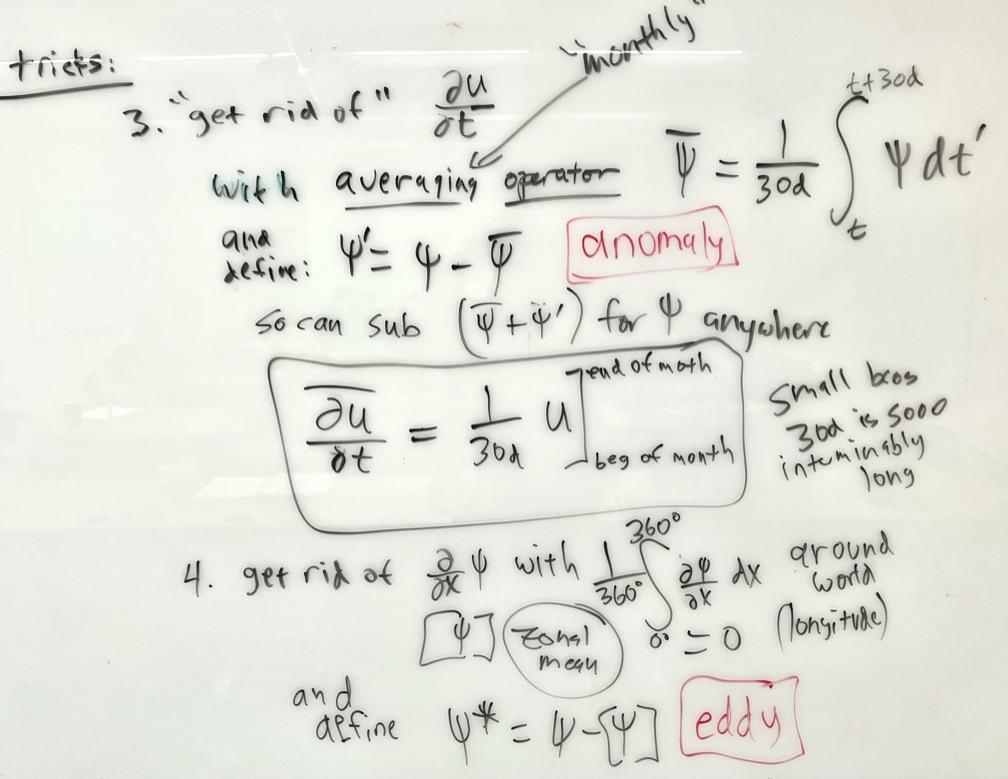 tricks:
"monthly"
3. "get rid of" ∂u/∂t
with averaging operator ψ̅ = 1/30d ∫_t^{t+30d} ψ dt'
and define: ψ' = ψ - ψ̅ anomaly
so can sub (ψ̅ + ψ') for ψ anywhere
\overline{∂u/∂t} = 1/30d u ]_{beg of month}^{end of moth}
small bcos
30d is sooo
interminably
long
4. get rid of ∂/∂x ψ with 1/360° ∫_{0°}^{360°} ∂ψ/∂x dx = 0 around world (longitude)
[ψ] zonal mean
and define ψ* = ψ - [ψ] eddy